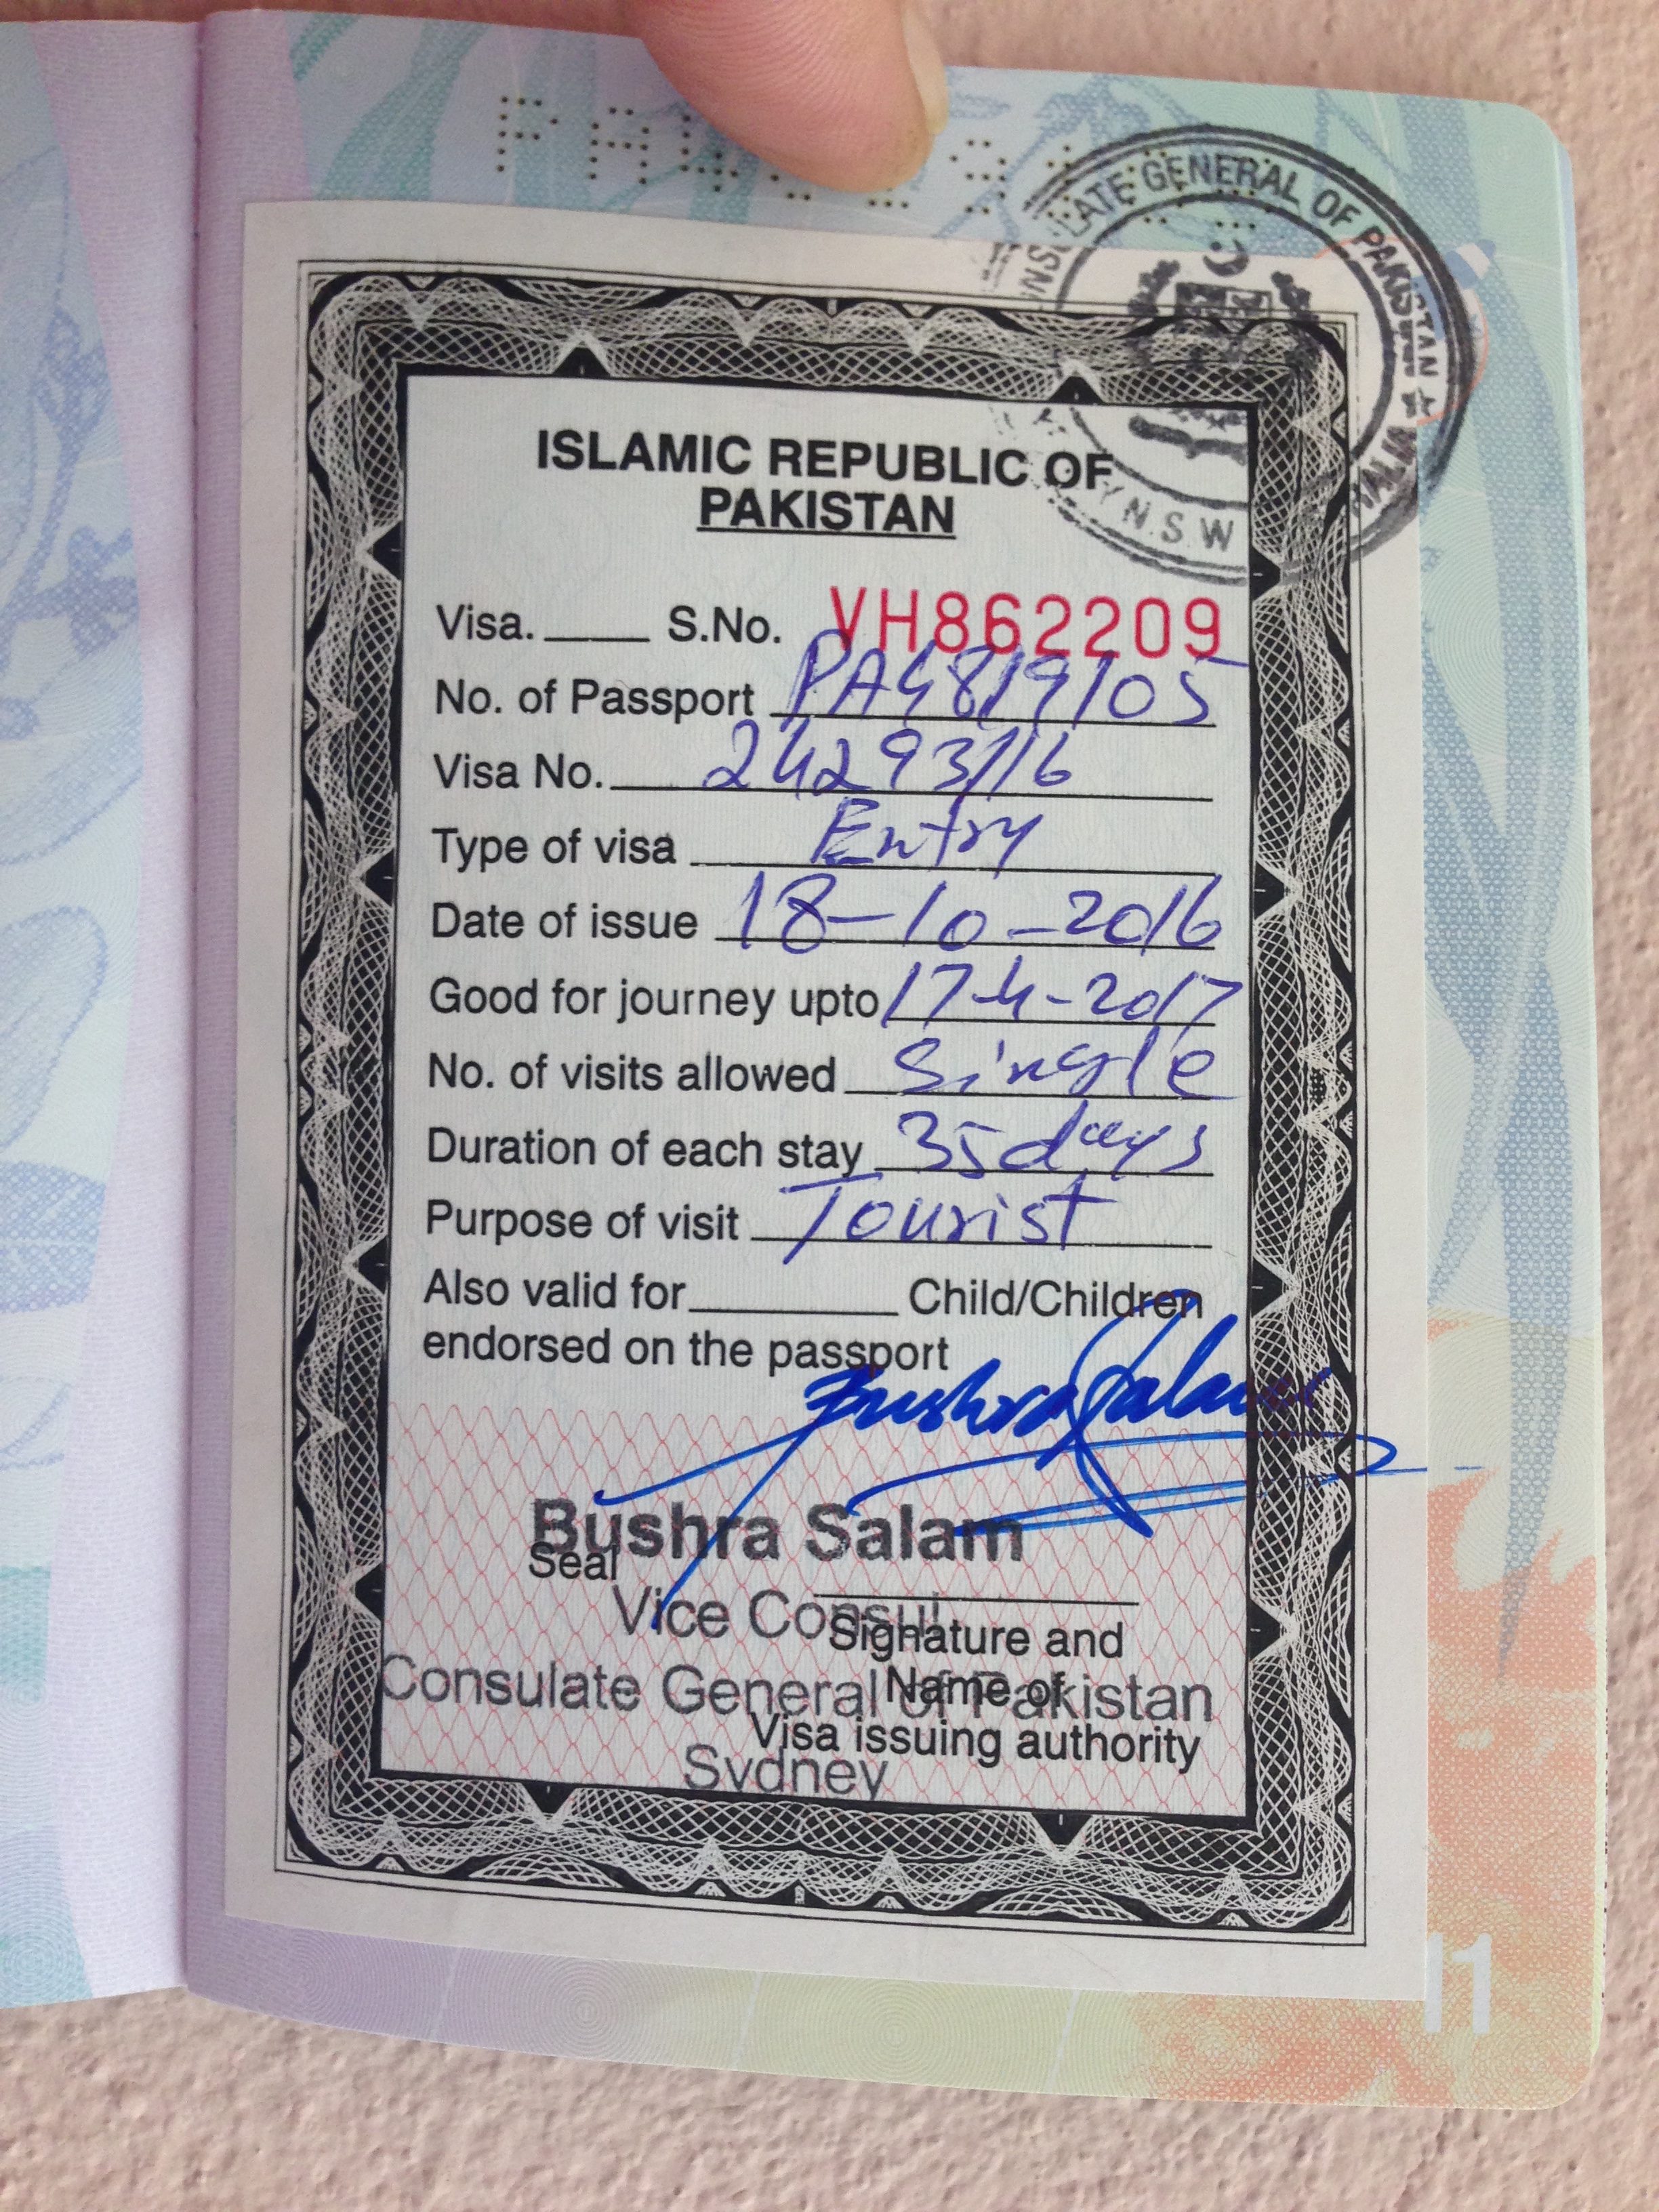 CONSULATE GENERAL OF PAKISTAN
N.S.W
ISLAMIC REPUBLIC OF
PAKISTAN
Visa. ____ S.No. VH862209
No. of Passport PA4819105
Visa No. 24293/16
Type of visa Entry
Date of issue 18-10-2016
Good for journey upto 17-4-2017
No. of visits allowed Single
Duration of each stay 35 days
Purpose of visit Tourist
Also valid for ________ Child/Children
endorsed on the passport
Bushra Salam
Bushra Salam
Seal
Vice Consul
Signature and
Consulate General of Pakistan
Name of
Visa issuing authority
Sydney
11